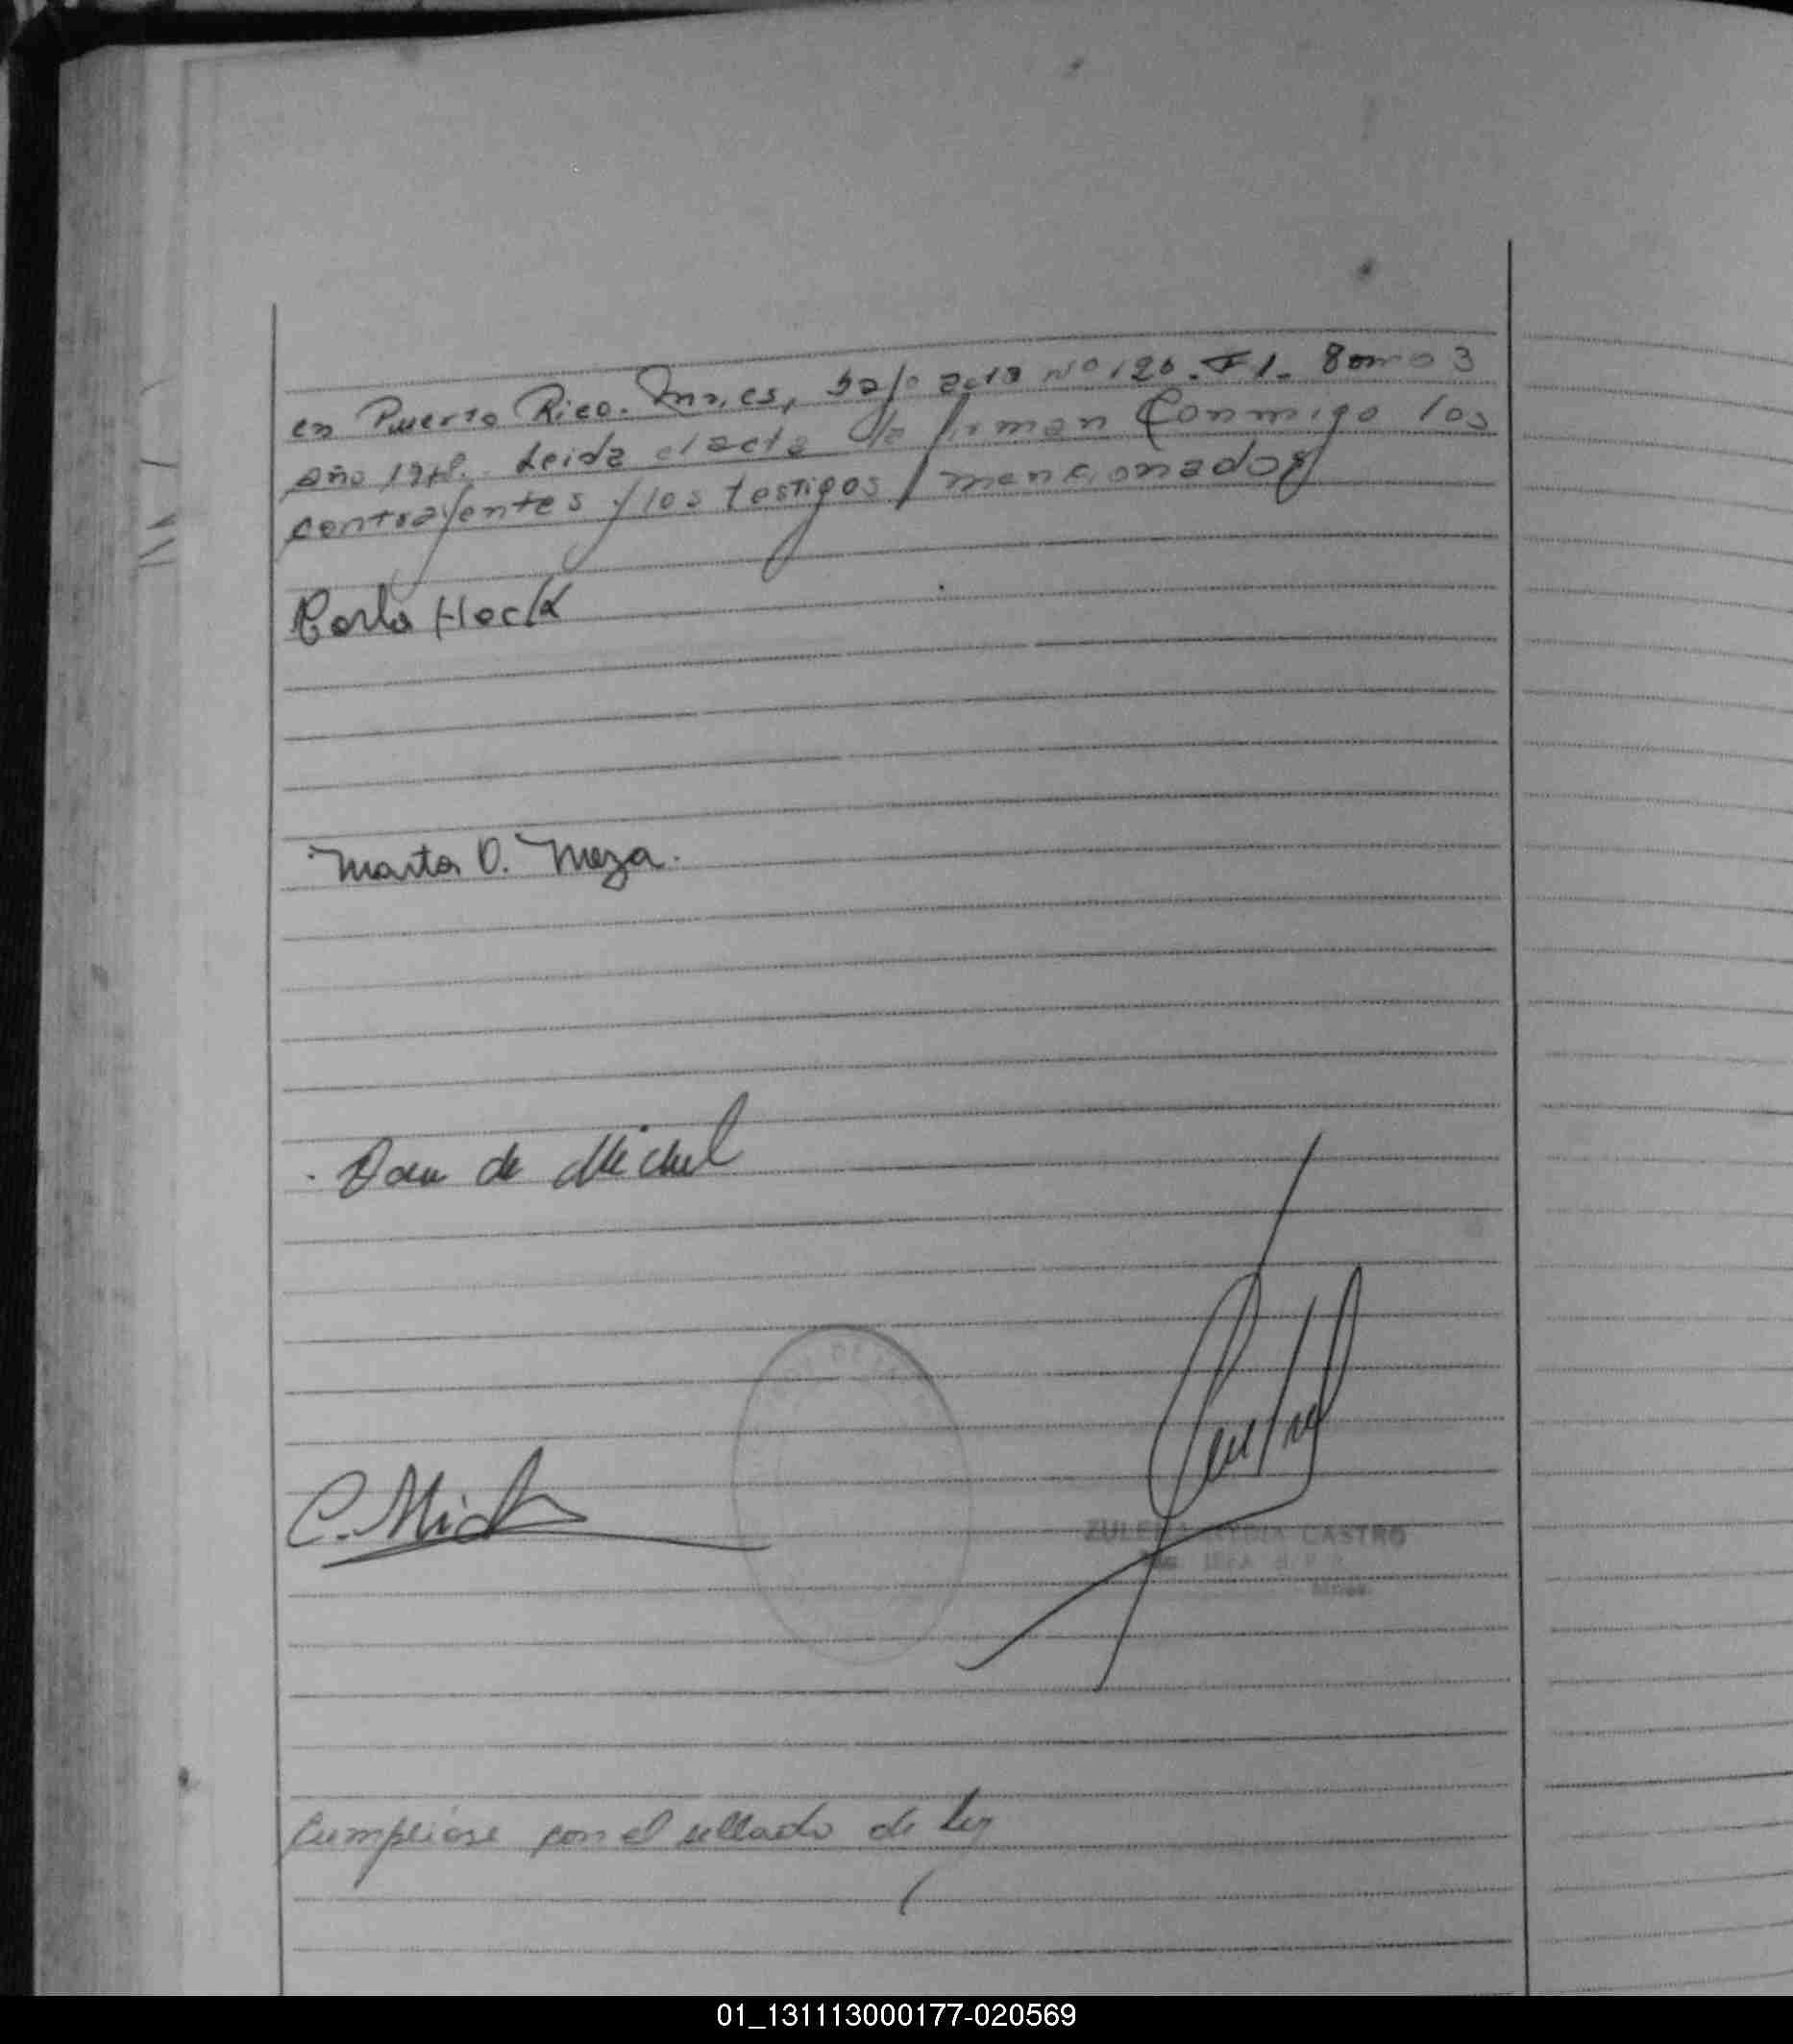 en Puerto Rico. Mnes, bajo acta Nº 120. Fl. Tomo 3
año 19 Leida el acta la firman Conmigo los
contrayentes y los testigos mencionados
Carlo Hock
Marta O. Meza.
de Michel
C. Mich
ZULE LYDIA CASTRO
Mnes.
Cumpliose con el sellado de ley
01_131113000177-020569